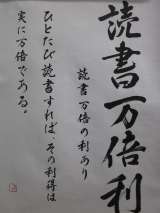 読書万倍利
読書万倍の利あり
ひとたび読書すれば、その利得は
実に万倍である。